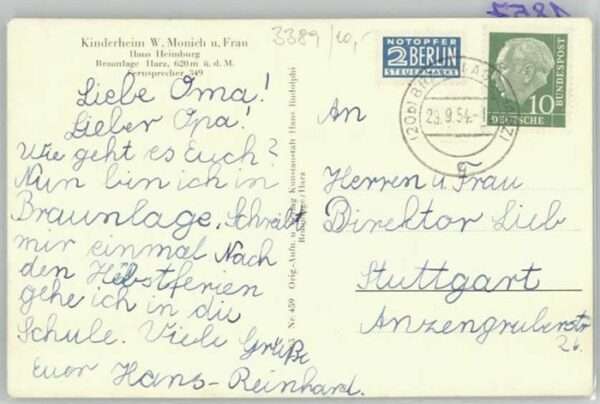 3389/10,-
Kinderheim W. Monich u. Frau
Haus Heimburg
Braunlage Harz, 620 m ü. d. M.
Fernsprecher 349
Liebe Oma!
Lieber Opa!
Wie geht es Euch?
Nun bin ich in
Braunlage. Schreibt
mir einmal Nach
den Hebstferien
gehe ich in die
Schule. Viele Grüße
Euer Hans-Reinhard.
Nr. 459 Orig.-Aufn. u. Kunstanstalt Hans Rudolphi
Braunlage/Harz
NOTOPFER
2 BERLIN
STEUERMARKE
DEUTSCHE
BUNDESPOST
10
(20b) BRAUNLAGE
29.9.54.-1
g
An
Herren u Frau
Direktor Lieb
Stuttgart
Anzengruberstr
26.